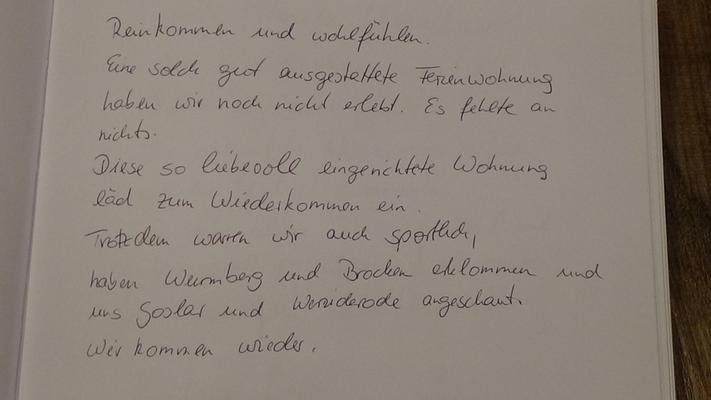 Reinkommen und wohlfühlen.
Eine solch gut ausgestattete Ferienwohnung
haben wir noch nicht erlebt. Es fehlte an
nichts.
Diese so liebevoll eingerichtete Wohnung
läd zum Wiederkommen ein.
Trotzdem waren wir auch sportlich,
haben Wurmberg und Brocken erklommen und
uns Goslar und Werniderode angeschaut.
Wir kommen wieder.